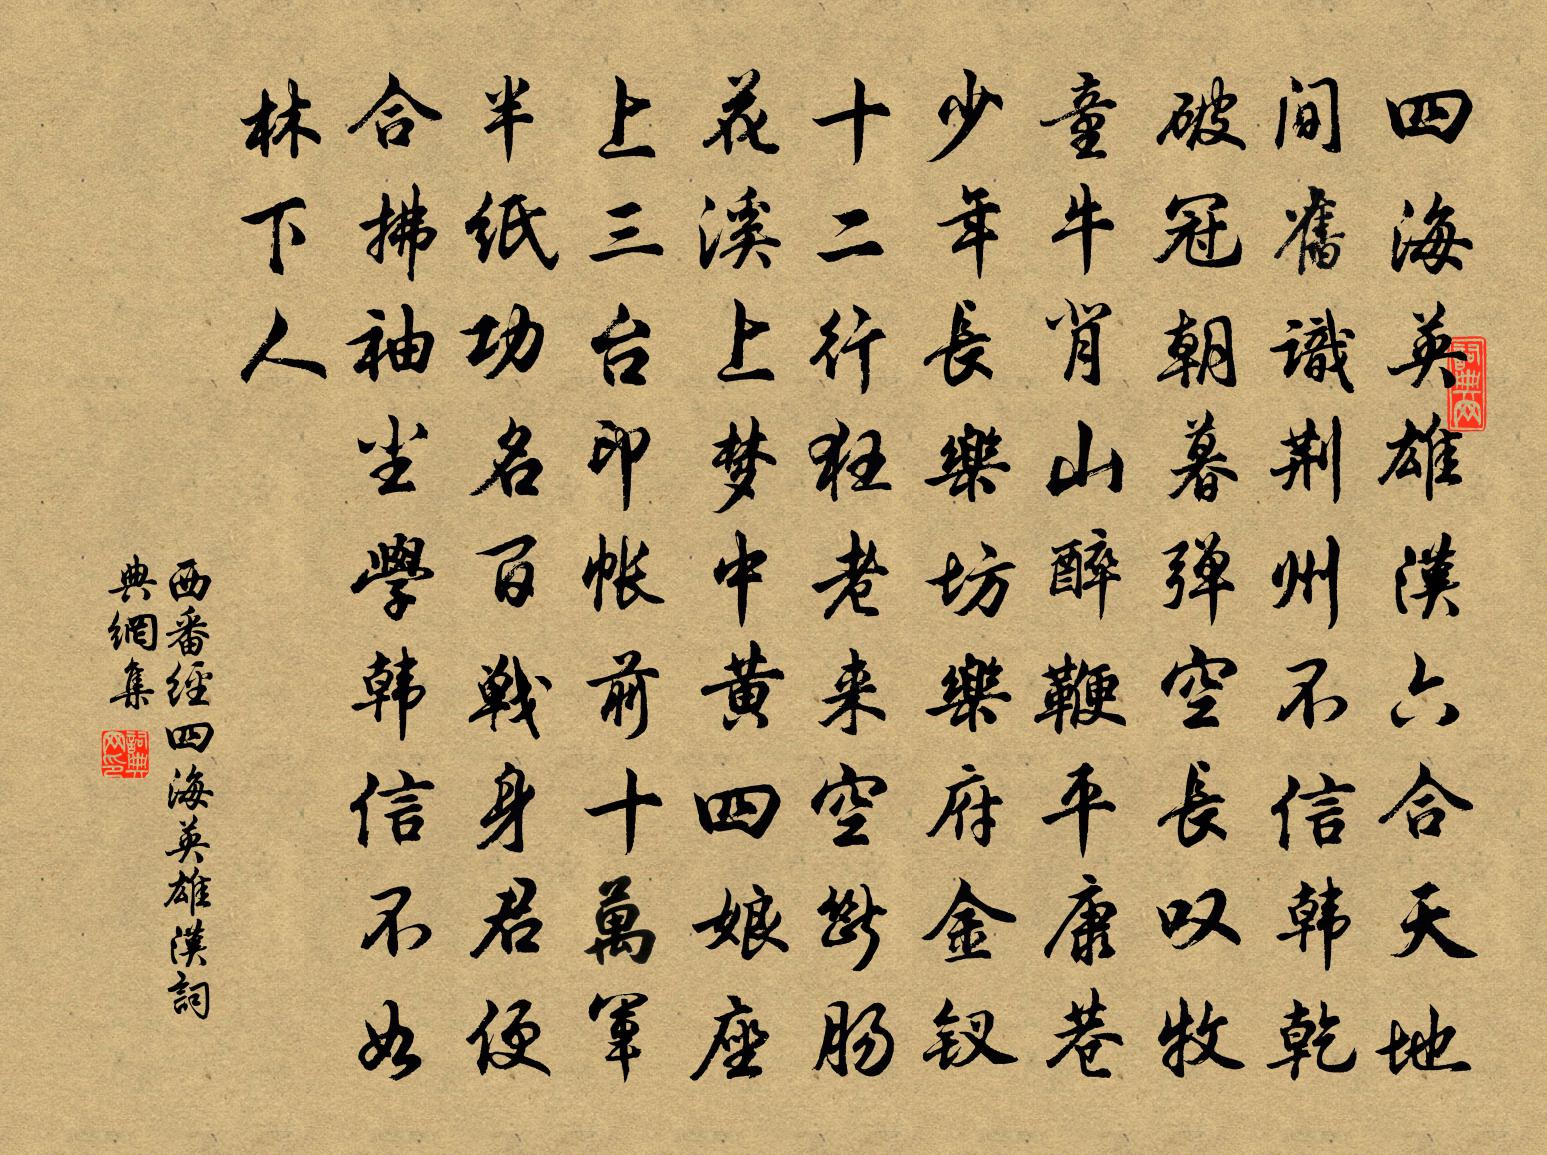 四海英雄漢六合天地
间舊識荆州不信韩乾
破冠朝暮弹空長叹牧
童牛背山醉鞭平康巷
少年長樂坊樂府金钗
十二行狂老来空斷肠
花溪上梦中黄四娘座
上三台印帐前十萬軍
半纸功名百戰身君便
合拂袖坐學韩信不如
林下人
西番經四海英雄漢詞
典網集